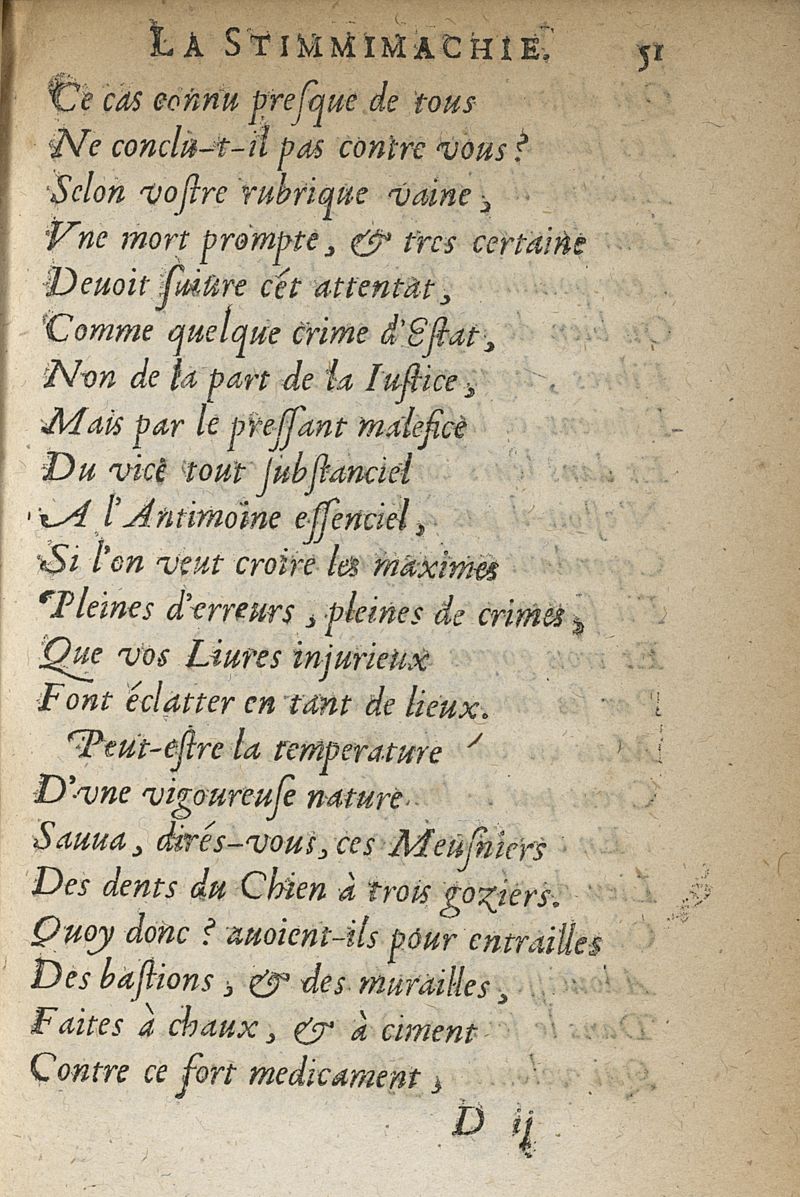 LA STIMMIMACHIE. 51
Ce cas connu preſque de tous
Ne conclu-t-il pas contre vous?
Selon voſtre rubrique vaine,
Vne mort prompte, & tres certaine
Deuoit ſuiure cét attentat,
Comme quelque crime d'Eſtat,
Non de la part de la Iuſtice,
Mais par le preſſant malefice
Du vice tout ſubſtanciel
A l'Antimoine eſſenciel,
Si l'on veut croire les maximes
Pleines d'erreurs, pleines de crimes,
Que vos Liures injurieux
Font éclatter en tant de lieux.
Peut-eſtre la temperature
D'vne vigoureuſe nature
Sauua, dirés-vous, ces Meuſniers
Des dents du Chien à trois goziers.
Quoy donc? auoient-ils pour entrailles
Des baſtions, & des murailles,
Faites à chaux, & à ciment
Contre ce fort medicament,
D ij